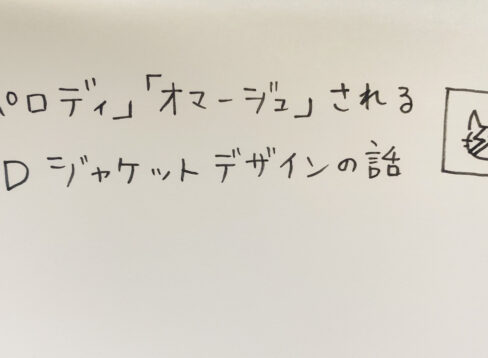 パロディ」「オマージュ」される
Dジャケットデザインの話